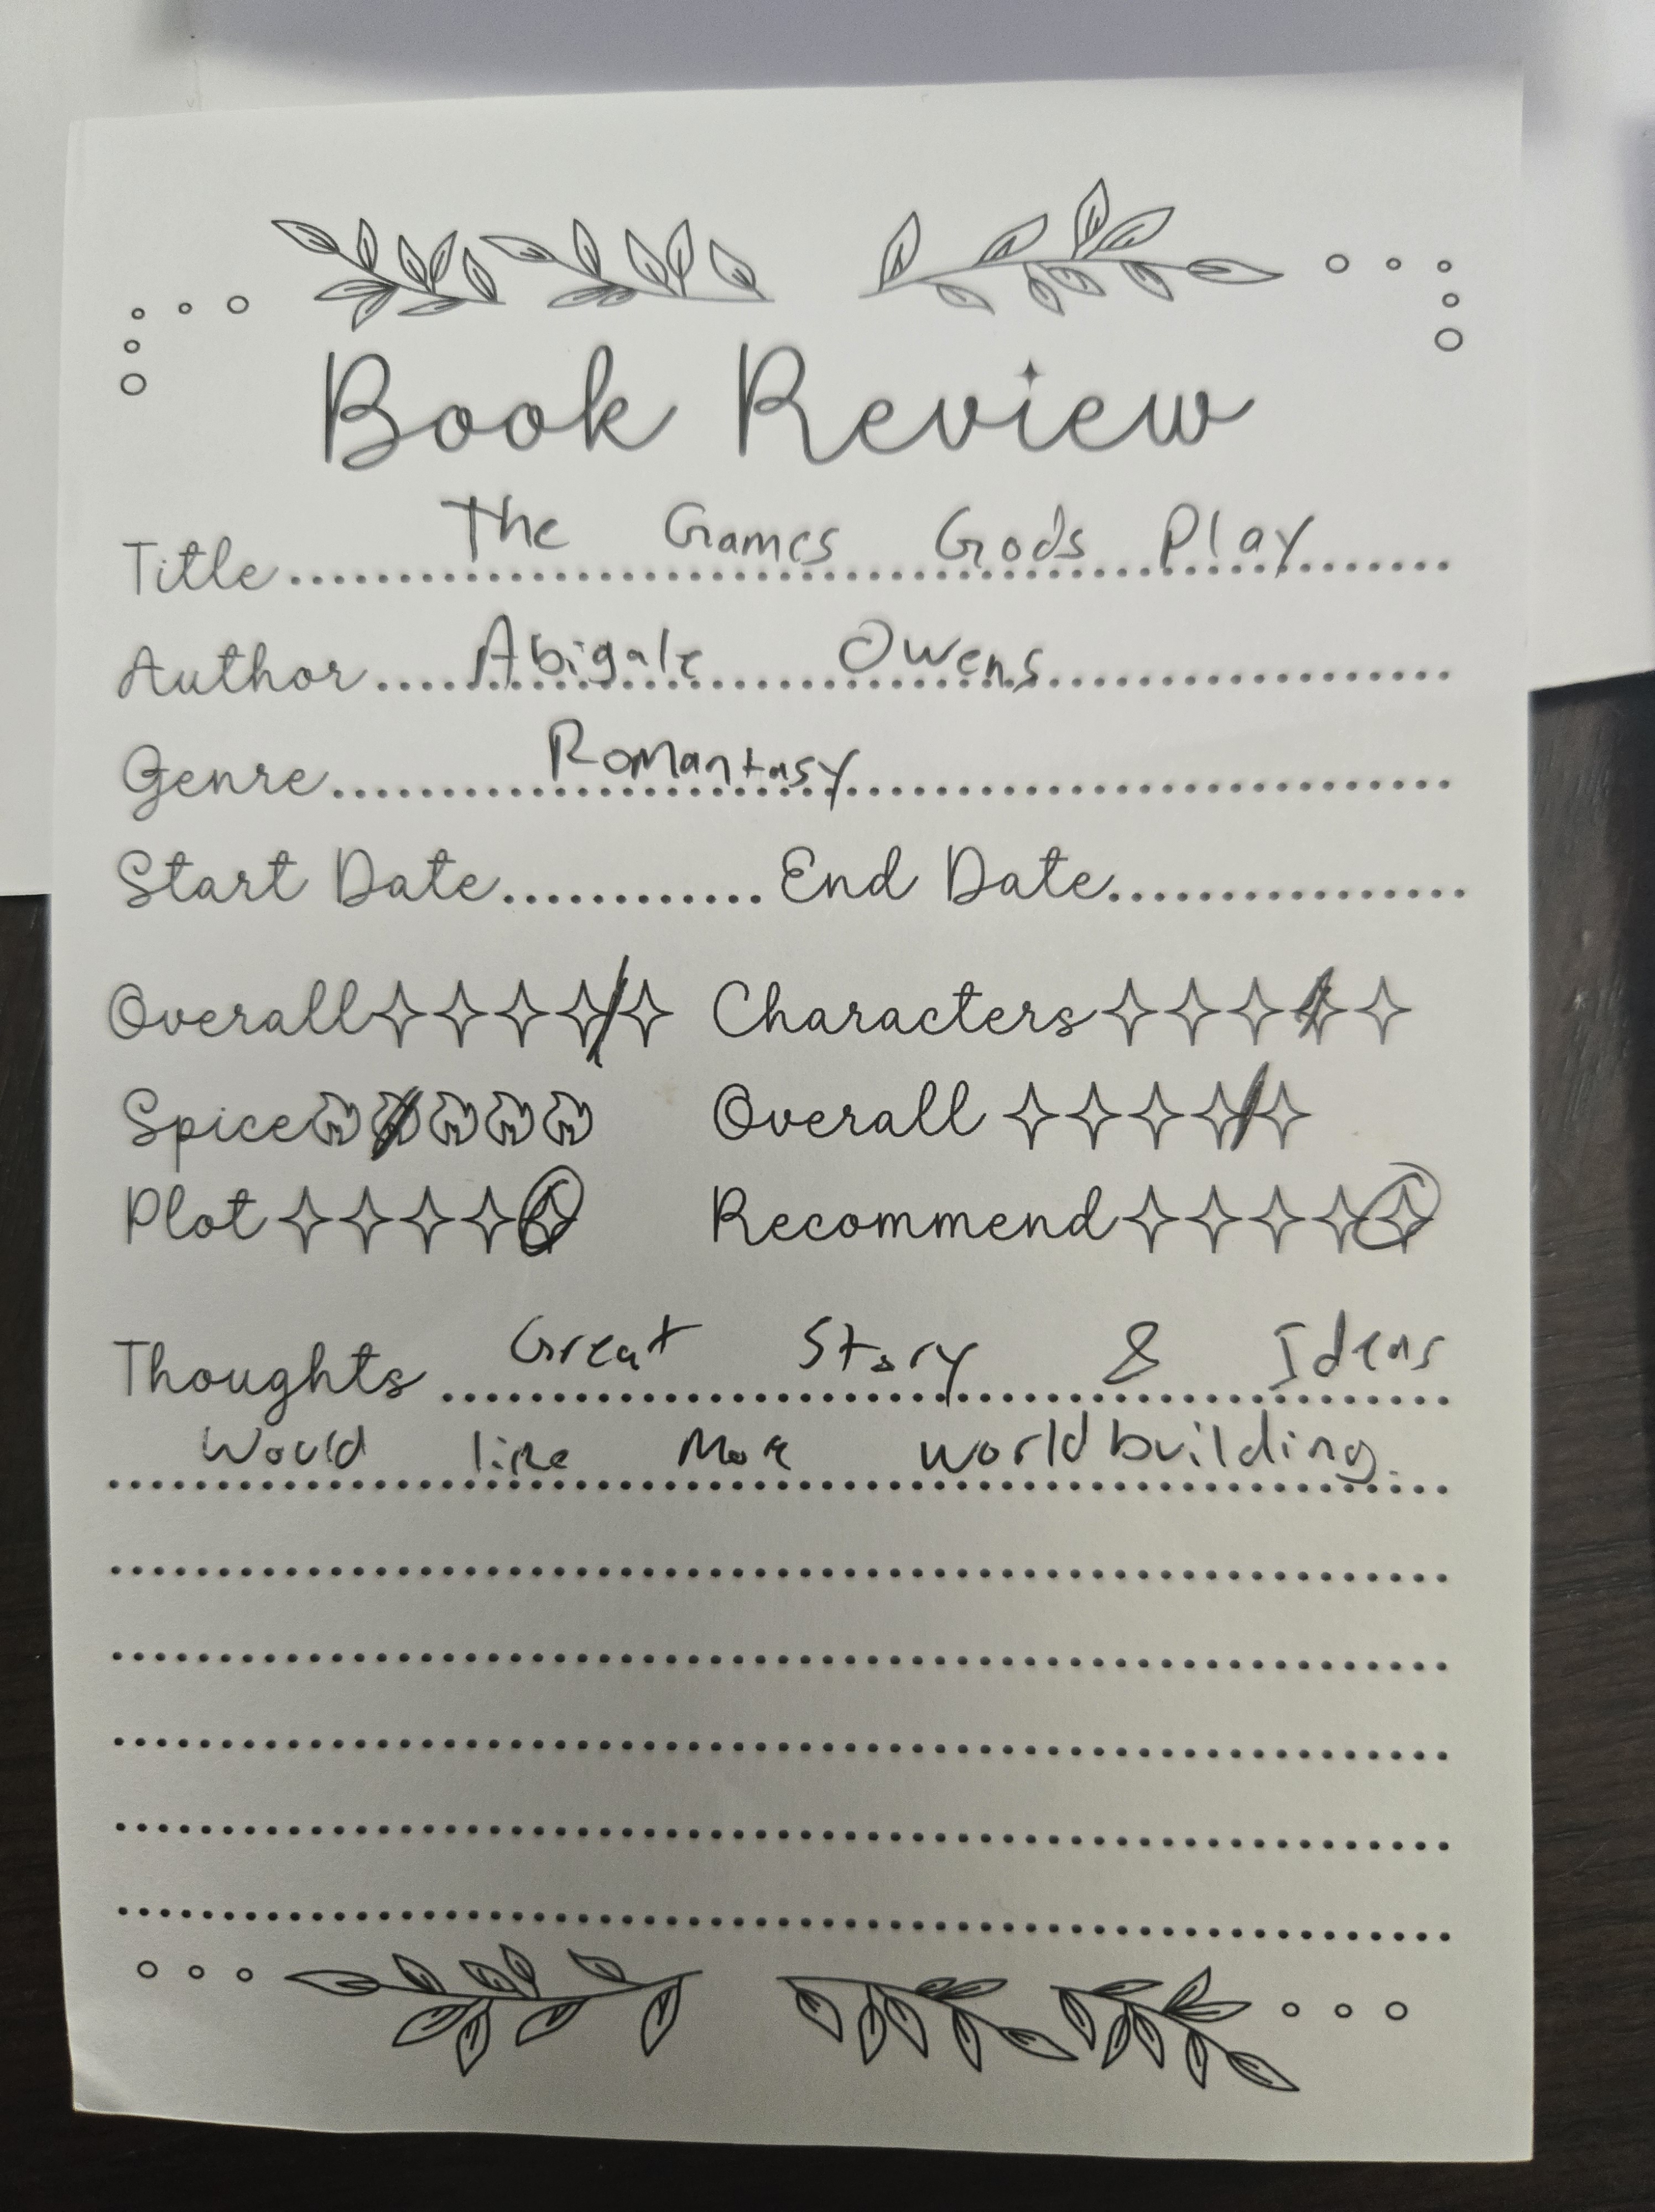 Book Review
Title The Games Gods Play
Author Abigale Owens
Genre Romantasy
Start Date End Date
Overall Characters
Spice Overall
Plot Recommend
Thoughts Great Story & Ideas
Would like More worldbuilding.